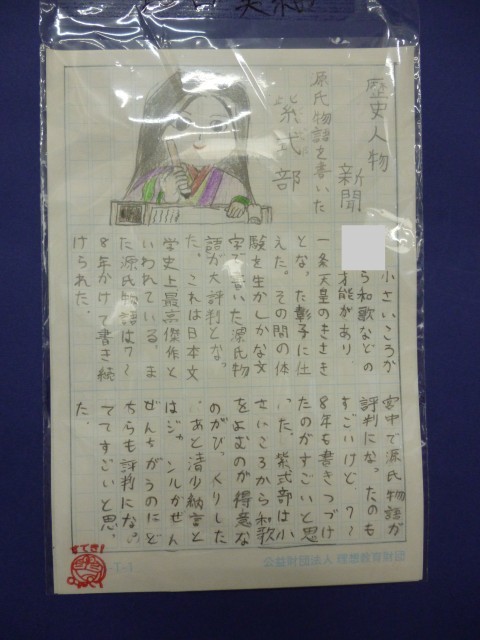 歴史人物
新聞
源氏物語を書いた
紫式部
小さいころか
ら和歌などの
才能があり、
一条天皇のきさき
となった彰子に仕
えた。その間の体
験を生かしかな文
字で書いた源氏物
語が大評判となっ
た。これは日本文
学史上最高傑作と
いわれている。ま
た源氏物語は7〜
8年かけて書き続
けられた。
宮中で源氏物語が
評判になったのも
すごいけど、7〜
8年も書きつづけ
たのがすごいと思
いた。紫式部は小
さいころから和歌
をよむのが得意な
のがびっくりした
。あと清少納言と
はジャンルがぜん
ぜんちがうのにど
ちらも評判になっ
ててすごいと思っ
た。
公益財団法人 理想教育財団